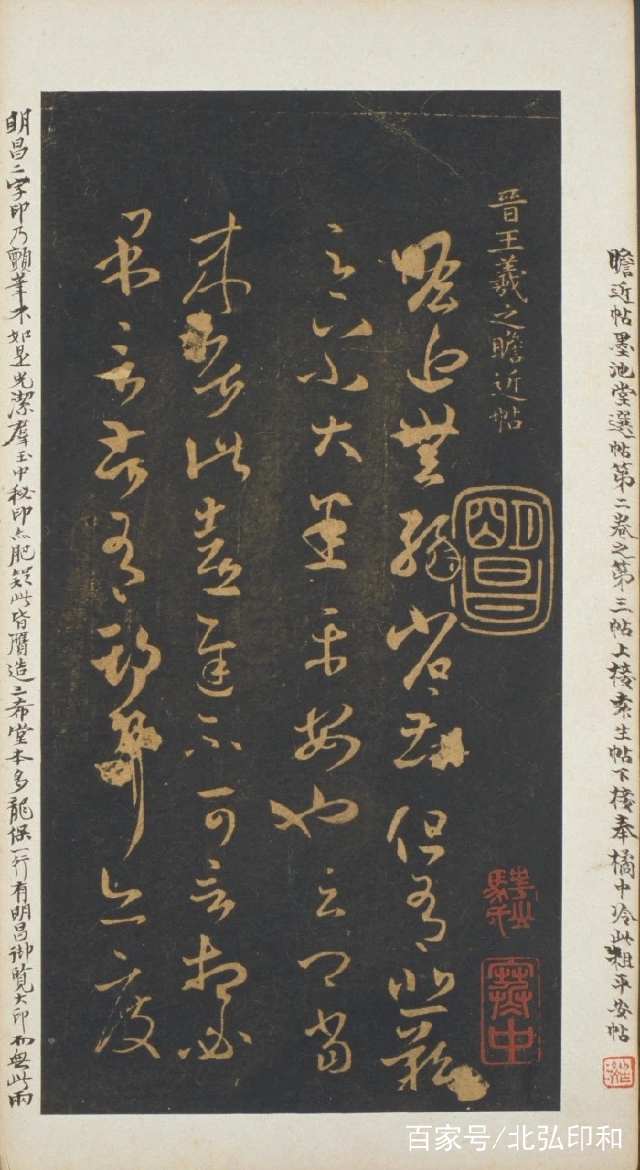 瞻近帖墨池堂選帖第二卷之第三帖上接来生帖下接奉橘中冷此粗平安帖
晋王羲之瞻近帖
明昌
瞻近無緣省苦但有悲歎
足下小大悉平安也云卿當
来居此喜遲不可言想必
果言苦有期耳亦度
明昌二字印乃顫筆不如是光潔群玉中秘印亦肥疑此皆贗造三希堂本多龍保一行有明昌御覽大印而無此兩
百家号/北弘印和